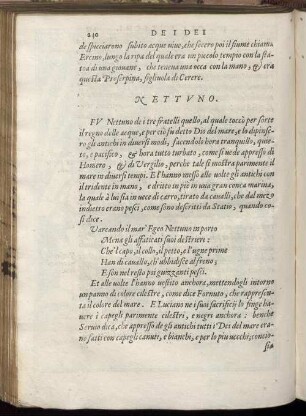 240 DE I DEI
de spicciarono subito acque vive, che fecero poi il fiume chiama
Ercino, lungo la ripa del quale era un piccolo tempio con la sta
tua di una giovane, che teneva una occa con la mano, & era
questa Proserpina, figliuola di Cerere.
NETTVNO.
FV Nettuno de i tre fratelli quello, al quale toccò per sorte
il regno delle acque, e per ciò fu detto Dio del mare, e lo dipinse-
ro gli antichi in diversi modi, facendolo hora tranquillo, quie-
to, e pacifico, & hora tutto turbato, come si vede appresso di
Homero, & di Vergilio, perche tale si mostra parimente il
mare in diversi tempi. E l'hanno messo alle volte gli antichi con
il tridente in mano, e dritto in piè in una gran conca marina,
la quale à lui sia in vece di carro, tirato da cavalli, che dal mezo
indietro erano pesci, come sono descritti da Statio, quando co-
sì dice.
Varcando il mar' Egeo Nettuno in porto
Mena gli affaticati suoi destrieri:
Che'l capo, il collo, il petto, e l'ugne prime
Han di cavallo, et ubbidisce al freno;
E son nel resto poi guizzanti pesci.
Et alle volte l'hanno vestito anchora, mettendogli intorno
un panno di colore cilestre, come dice Fornuto, che rappresen-
ta il colore del mare. E Luciano ne i suoi sacrificij lo finge ha-
vere i capegli parimente cilestri, e negri anchora: benche
Servio dica, che appresso de gli antichi tutti i Dei del mare era-
no fatti con capegli canuti, e bianchi, e per lo più vecchi, conciò-
sia